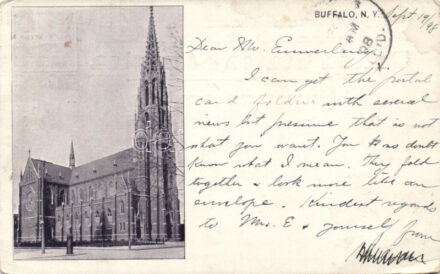 BUFFALO, N. Y.
Sept 19/98
AM
98
Dear Mr.
I can get the postal
card folders with several
views but presume that is not
what you want. You no doubt
know what I mean. They fold
together & look more like an
envelope. Kindest regards
to Mrs. E & yourself from